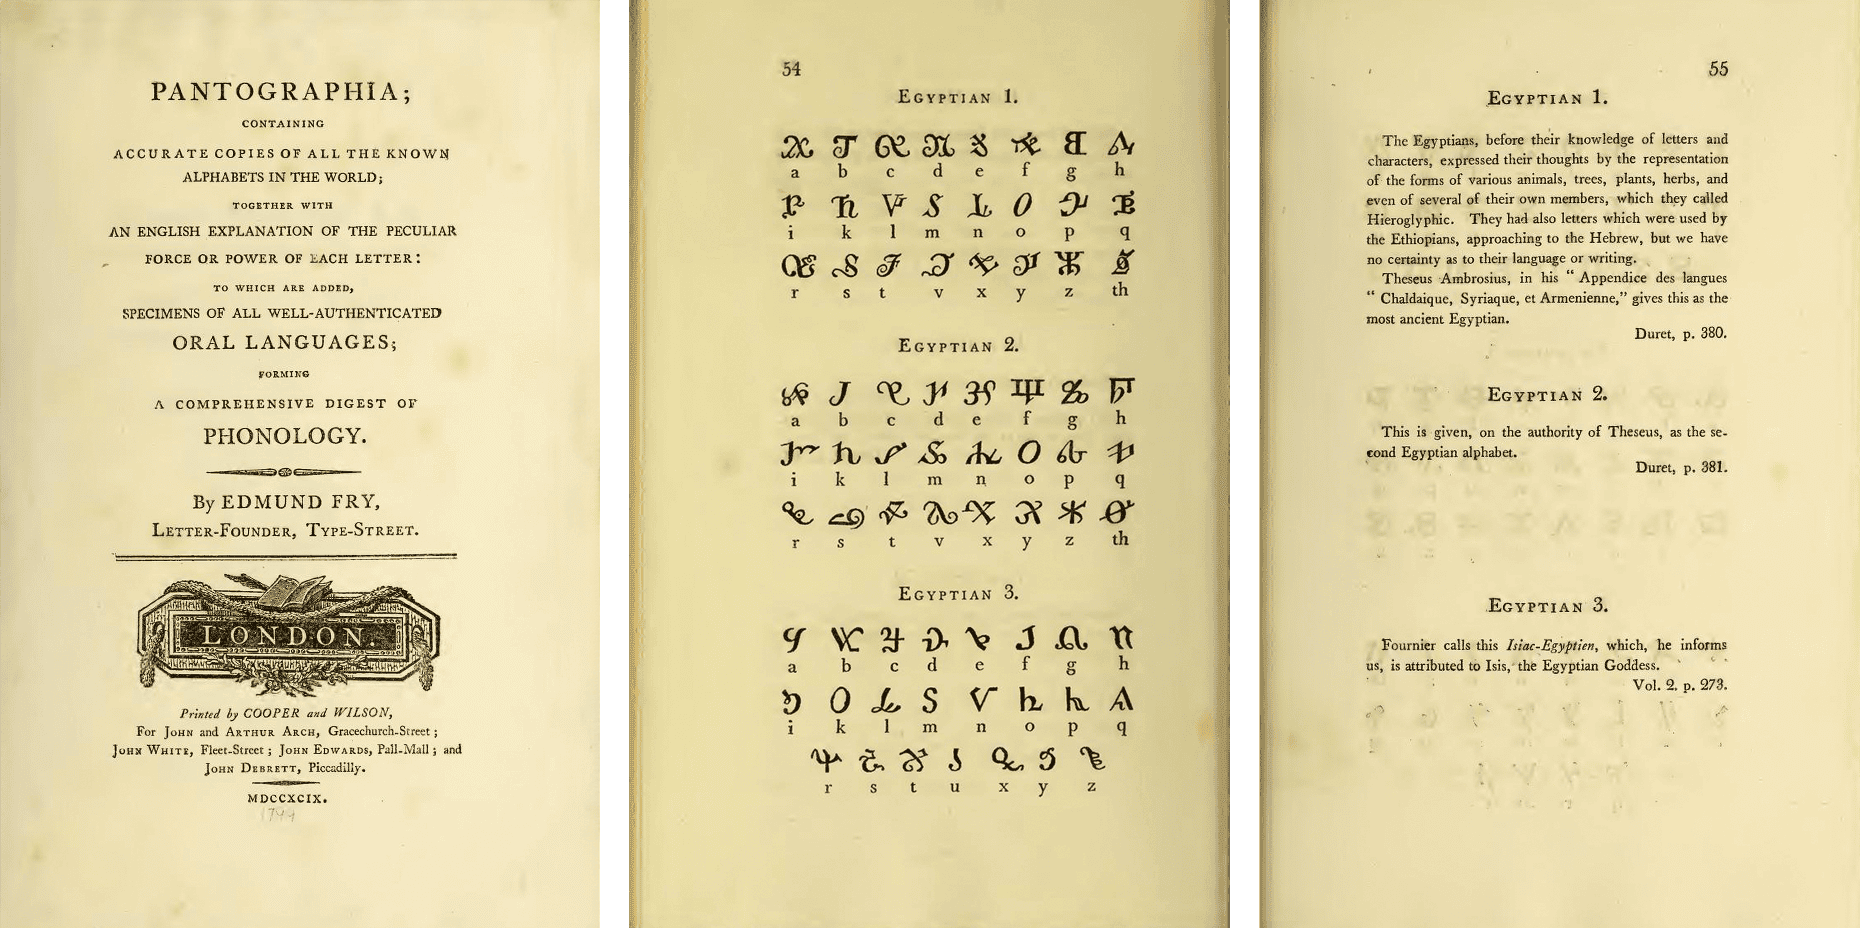 PANTOGRAPHIA;
CONTAINING
ACCURATE COPIES OF ALL THE KNOWN
ALPHABETS IN THE WORLD;
TOGETHER WITH
AN ENGLISH EXPLANATION OF THE PECULIAR
FORCE OR POWER OF EACH LETTER:
TO WHICH ARE ADDED,
SPECIMENS OF ALL WELL-AUTHENTICATED
ORAL LANGUAGES;
FORMING
A COMPREHENSIVE DIGEST OF
PHONOLOGY.
By EDMUND FRY,
LETTER-FOUNDER, TYPE-STREET.
LONDON.
Printed by COOPER and WILSON,
For JOHN and ARTHUR ARCH, Gracechurch-Street;
JOHN WHITE, Fleet-Street; JOHN EDWARDS, Pall-Mall; and
JOHN DEBRETT, Piccadilly.
MDCCXCIX.
1799
54
EGYPTIAN 1.
a b c d e f g h
i k l m n o p q
r s t v x y z th
EGYPTIAN 2.
a b c d e f g h
i k l m n o p q
r s t v x y z th
EGYPTIAN 3.
a b c d e f g h
i k l m n o p q
r s t u x y z
55
EGYPTIAN 1.
The Egyptians, before their knowledge of letters and
characters, expressed their thoughts by the representation
of the forms of various animals, trees, plants, herbs, and
even of several of their own members, which they called
Hieroglyphic. They had also letters which were used by
the Ethiopians, approaching to the Hebrew, but we have
no certainty as to their language or writing.
Theseus Ambrosius, in his “ Appendice des langues
“ Chaldaique, Syriaque, et Armenienne,” gives this as the
most ancient Egyptian.
Duret, p. 380.
EGYPTIAN 2.
This is given, on the authority of Theseus, as the se-
cond Egyptian alphabet.
Duret, p. 381.
EGYPTIAN 3.
Fournier calls this Isiac-Egyptien, which, he informs
us, is attributed to Isis, the Egyptian Goddess.
Vol. 2. p. 273.